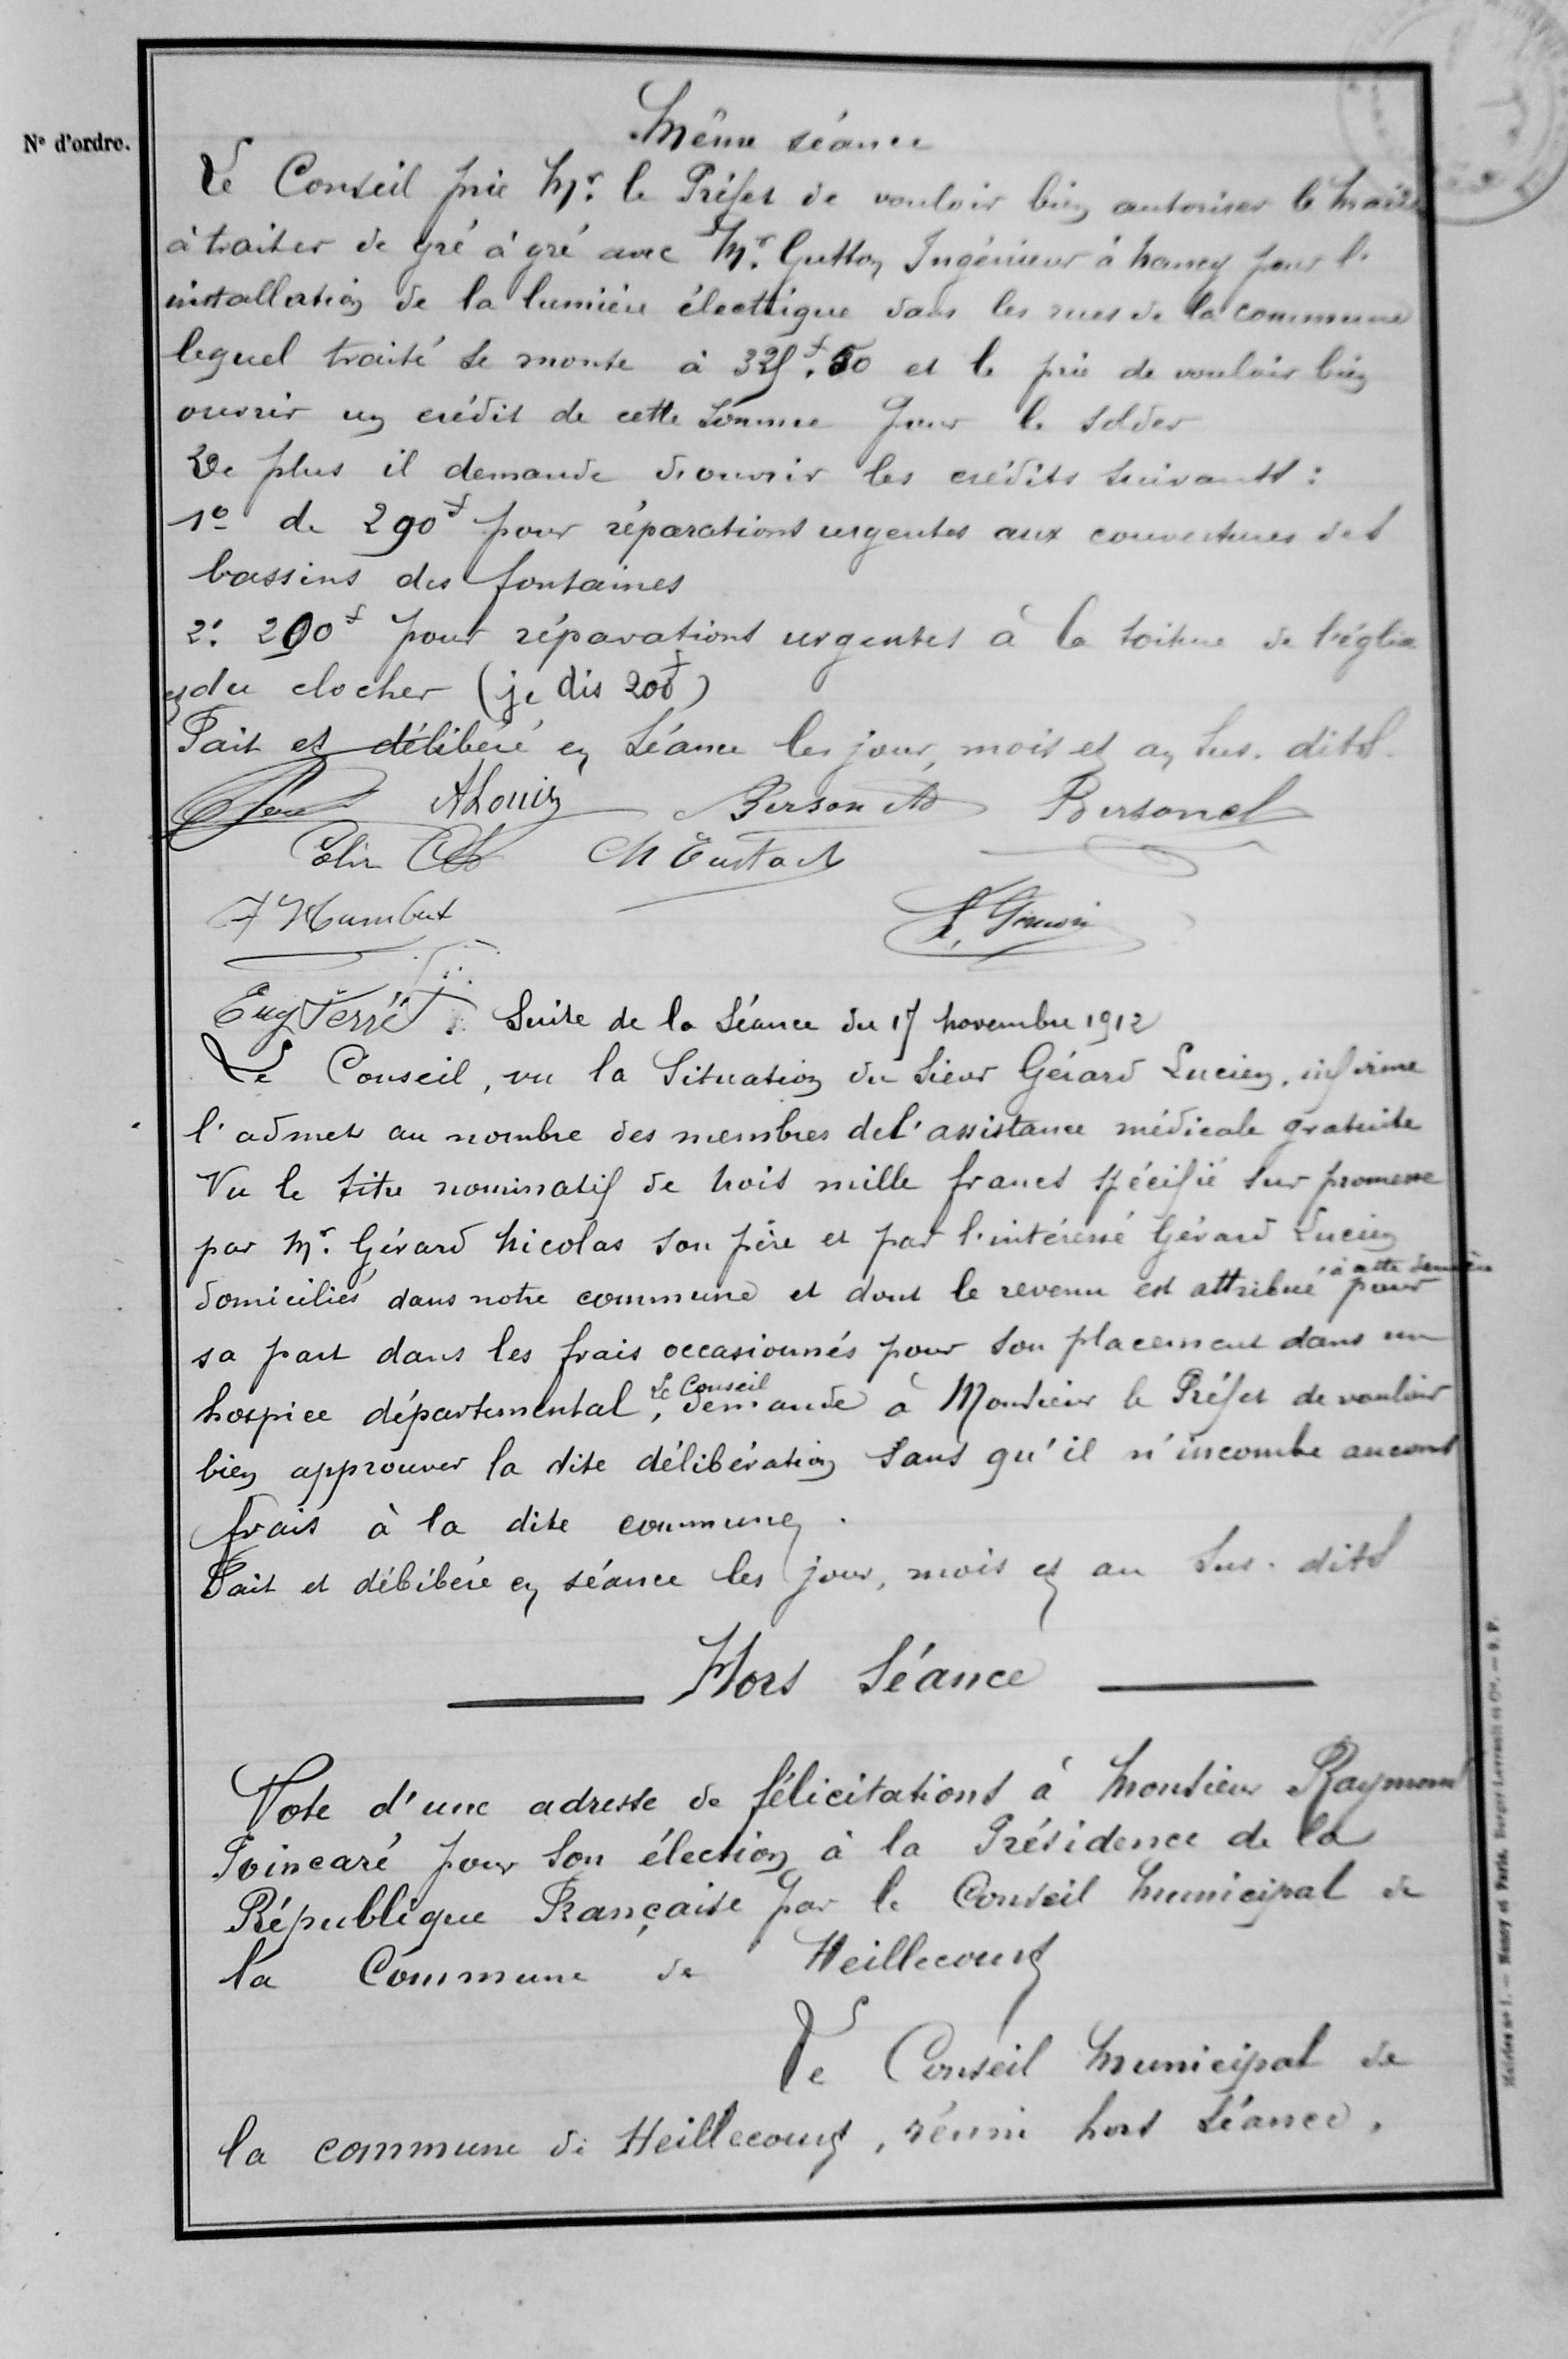 Même séance
N° d'ordre.
Le Conseil prie Mr. le Préfet de vouloir bien autoriser le Maire
à traiter de gré à gré avec Mr. Gutton Ingénieur à Nancy pour l'
installation de la lumière électrique dans les rues de la commune
lequel traité se monte à 325f.50 et le prie de vouloir bien
ouvrir un crédit de cette somme pour le solder
De plus il demande d'ouvrir les crédits suivants :
1° de 290f pour réparations urgentes aux couvertures des
bassins des fontaines
2. 200f pour réparations urgentes à la toiture de l'église
et du clocher (je dis 200f)
Fait et délibéré en séance les jour, mois et an sus. dits.
ALouis Berson Bersonel
Ch Eustach
F Humbert
Eug Ferré. Suite de la séance du 17 Novembre 1912
Le Conseil, vu la situation du sieur Gérard Lucien, infirme
l'admet au nombre des membres de l'assistance médicale gratuite
Vu le titre nominatif de trois mille francs spécifié sur promesse
par Mr. Gérard Nicolas son père et par l'intéressé Gérard Lucien
domiciliés dans notre commune et dont le revenu est attribué à cette dernière pour
sa part dans les frais occasionnés pour son placement dans un
hospice départemental, Le Conseil demande à Monsieur le Préfet de vouloir
bien approuver la dite délibération sans qu'il n'incombe aucuns
frais à la dite commune.
Fait et débibéré en séance les jour, mois et an sus. dits
Hors Séance
Vote d'une adresse de félicitations à Monsieur Raymond
Poincaré pour son élection à la Présidence de la
République Française par le Conseil Municipal de
la Commune de Heillecourt
Le Conseil Municipal de
la commune de Heillecourt, réuni hors séance,
Mairies n° 1. — Nancy et Paris, Berger-Levrault et Cie. — 9. F.